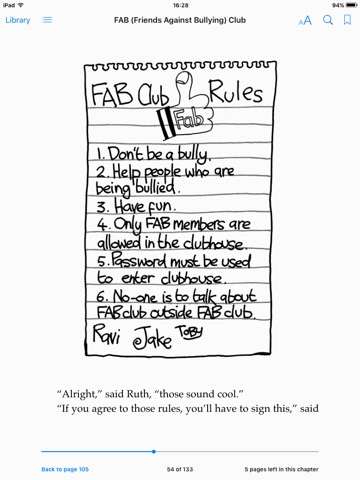 iPad
16:28
94%
Library
FAB (Friends Against Bullying) Club
AA
FAB Club Rules
Fab
1. Don't be a bully.
2. Help people who are
being bullied.
3. Have fun.
4. Only FAB members are
allowed in the clubhouse.
5. Password must be used
to enter clubhouse.
6. No-one is to talk about
FAB club outside FAB club.
Ravi Jake TOBY
“Alright,” said Ruth, “those sound cool.”
“If you agree to those rules, you’ll have to sign this,” said
Back to page 105
54 of 133
5 pages left in this chapter